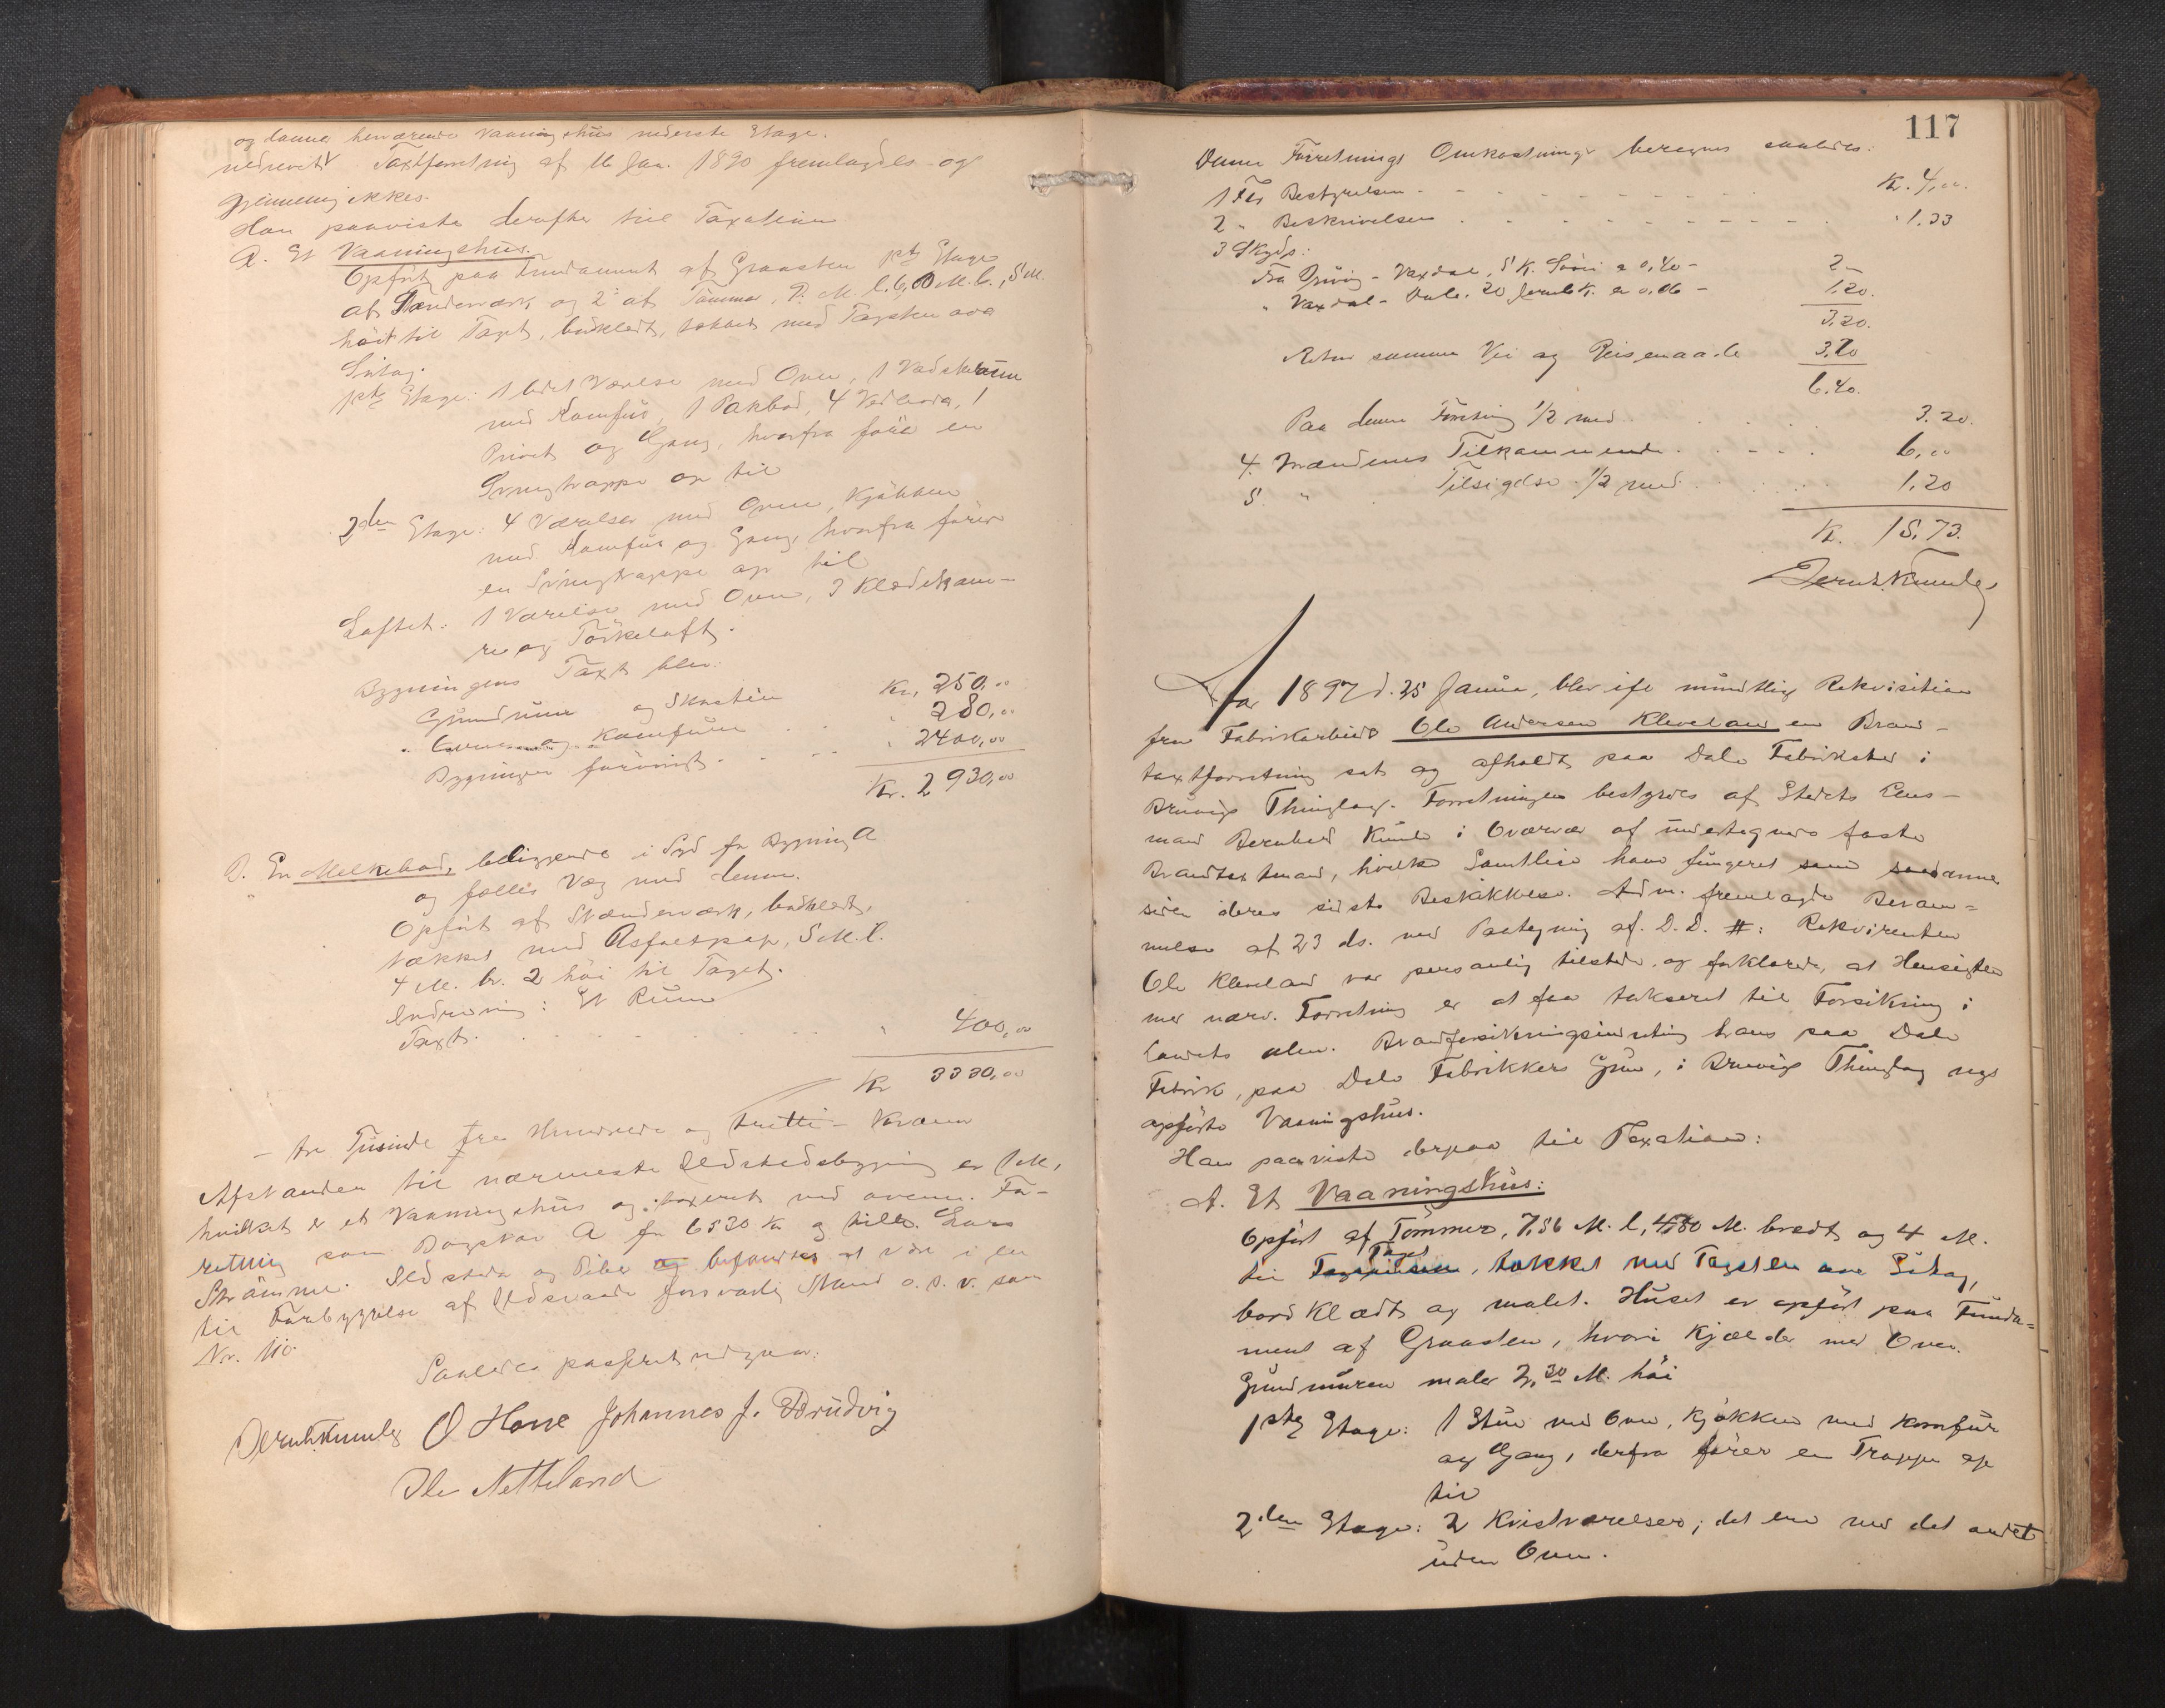 og danne henværende Vaaningshus nederste Etage.
nedrevet. Taxtforretning af 16 Jan. 1890 fremlagdes og
gjennemgikkes.
Han paaviste derefter til Taxation
A. Et Vaaningshus.
Opført paa Fundament af Graasten, 1ste Etage
af Stænderværk og 2den af Tømmer, M. l. 6, M. b., 5 M.
høit til Taget, bordklædt, tækket med Tagsten ova
Sutag.
1ste Etage: 1 lidet Værelse med Oven, 1 Vadskerum
med Komfur, 1 Pakbod, 4 Vedboder, 1
Privet og Gang, hvorfra fører en
Svingtrappe op til
2den Etage: 4 Værelser med Ovne, Kjøkken
med Komfur og Gang, hvorfra fører
en Svingtrappe op til
Loftet: 1 Værelse med Oven, 3 Klædekam-
re og Tørkeloft.
Bygningens Taxt blev:
Grundmur og Skorsten Kr. 250,00
" Ovne og Komfurer " 280,00
Bygningen forøvrigt " 2400,00
Kr. 2930,00
B. En Melkebod, beliggende i Syd for Bygning A
og fælles Væg med denne.
Opført af Stænderværk, bordklædt,
tækket med Asfaltpap, 5 M. l.
4 M. br. 2 høi til Taget.
Indredning: Et Rum
Taxt " 400,00
Kr 3330,00
- tre Tusinde tre Hundrede og tretti - Kroner
Afstanden til nærmeste Ildstedsbygning er 1 M,
hvilket er et Vaaningshus og taxeret ved ovenn. For-
retning som Bogstav A for 6530 Kr og tilh. Lars
Strømme. Ildsteder og Piber og befandtes at være i en
til Forebyggelse af Ildsvaade forsvarlig Stand o. s. v. som
Nr. 110.
Saaledes passeret udgaar:
Bernh Kunles O Horse Johannes J. Brudvig
Ole Netteland
117
Denne Forretnings Omkostninger beregnes saaledes:
1 For Bestyrelsen Kr. 4,00.
2 " Beskrivelsen " 1.33
3 Skyds:
Fra Bruvig - Vaxdal, 5 K. Søvei a 0,40 - 2 -
" Vaxdal - Dale, 20 Jernb K. a 0,06 - 1.20.
3.20.
Retur samme Vei og Reisemaade 3.20
6.40.
Paa denne Forretning 1/2 med 3.20.
4. Mændenes Tilkommende 6,00
5 " Tilsigelse 1/2 med 1.20
Kr. 15.73.
Bernh. Kunles
Aar 1897 d. 25 Januar, blev ifl mundtlig Rekvisition
fra Fabrikarbeider Ole Andersen Kleveland en Brand-
taxtforretning sat og afholdt paa Dale Fabriksted i
Bruvigs Thinglag. Forretningen bestyredes af Stedets Lens-
mand Bernhard Kunle i Overvær af undertegnede faste
Brandtaxtmænd, hvilke Samtlige have fungeret som saadanne
siden deres sidste Beskikkelse. Adm. fremlagde Beram-
melse af 23 ds. med Paategning af. D. D. #: Rekvirenten
Ole Kleveland var personlig tilstede og forklarede, at Hensigten
med nærv. Forretning er at faa takseret til Forsikring i
Landets alm. Brandforsikringsindretning hans paa Dale
Fabrik, paa Dale Fabrikkers Grund, i Bruvigs Thinglag nys
opførte Vaaningshus.
Han paaviste derpaa til Taxation:
A. Et Vaaningshus:
Opført af Tømmer, 7,56 M. l, 4,80 M. bredt og 4 M.
til Taget, tækket med Tagsten ova Sutag,
bordklædt og malet. Huset er opført paa Funda-
ment af Graasten, hvori Kjælder med Oven.
Grundmuren maler 2,30 M. høi
1ste Etage: 1 Stue med Oven, Kjøkken med Komfur
og Gang, derfra fører en Trappe op
til
2den Etage: 2 Kvistværelser; det ene med det andet
uden Oven.